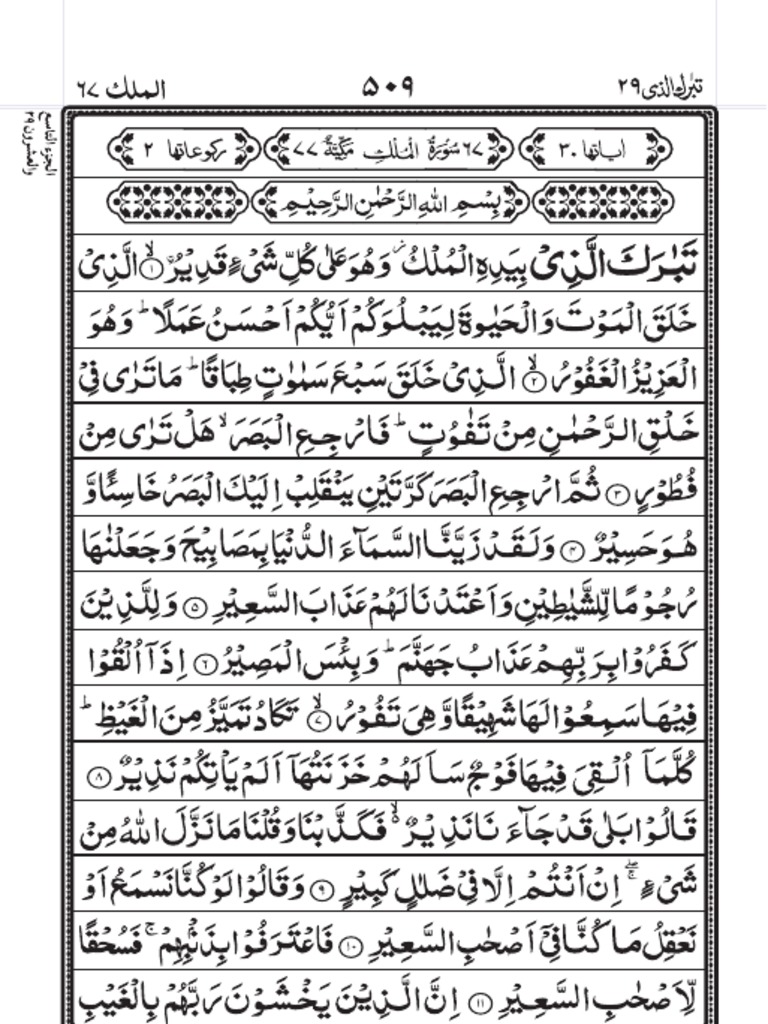 تبٰرك الذی ۲۹
۵۰۹
الملك ۶۷
الجزء التاسع
والعشرون ۲۹
اٰیاتها ۳۰
۶۷ سُوْرَةُ الْمُلْكِ مَكِّیَّةٌ ۷۷
رکوعاتها ۲
بِسْمِ اللهِ الرَّحْمٰنِ الرَّحِیْمِ
تَبٰرَكَ الَّذِیْ بِیَدِهِ الْمُلْكُ ز وَهُوَ عَلٰی كُلِّ شَیْءٍ قَدِیْرُ ۙ﴿۱﴾ الَّذِیْ
خَلَقَ الْمَوْتَ وَالْحَیٰوةَ لِیَبْلُوَكُمْ اَیُّكُمْ اَحْسَنُ عَمَلًا ؕ وَهُوَ
الْعَزِیْزُ الْغَفُوْرُ ۙ﴿۲﴾ الَّذِیْ خَلَقَ سَبْعَ سَمٰوٰتٍ طِبَاقًا ؕ مَا تَرٰی فِیْ
خَلْقِ الرَّحْمٰنِ مِنْ تَفٰوُتٍ ؕ فَارْجِعِ الْبَصَرَ ۙ هَلْ تَرٰی مِنْ
فُطُوْرٍ ﴿۳﴾ ثُمَّ ارْجِعِ الْبَصَرَ كَرَّتَیْنِ یَنْقَلِبْ اِلَیْكَ الْبَصَرُ خَاسِئًا وَّ
هُوَ حَسِیْرٌ ﴿۴﴾ وَلَقَدْ زَیَّنَّا السَّمَآءَ الدُّنْیَا بِمَصَابِیْحَ وَجَعَلْنٰهَا
رُجُوْمًا لِّلشَّیٰطِیْنِ وَاَعْتَدْنَا لَهُمْ عَذَابَ السَّعِیْرِ ﴿۵﴾ وَلِلَّذِیْنَ
كَفَرُوْا بِرَبِّهِمْ عَذَابُ جَهَنَّمَ ؕ وَبِئْسَ الْمَصِیْرُ ﴿۶﴾ اِذَاۤ اُلْقُوْا
فِیْهَا سَمِعُوْا لَهَا شَهِیْقًا وَّهِیَ تَفُوْرُ ۙ﴿۷﴾ تَكَادُ تَمَیَّزُ مِنَ الْغَیْظِ ؕ
كُلَّمَاۤ اُلْقِیَ فِیْهَا فَوْجٌ سَاَلَهُمْ خَزَنَتُهَاۤ اَلَمْ یَاْتِكُمْ نَذِیْرٌ ﴿۸﴾
قَالُوْا بَلٰی قَدْ جَآءَنَا نَذِیْرٌ ۙ۬ فَكَذَّبْنَا وَقُلْنَا مَا نَزَّلَ اللهُ مِنْ
شَیْءٍ ۚۖ اِنْ اَنْتُمْ اِلَّا فِیْ ضَلٰلٍ كَبِیْرٍ ﴿۹﴾ وَقَالُوْا لَوْ كُنَّا نَسْمَعُ اَوْ
نَعْقِلُ مَا كُنَّا فِیْۤ اَصْحٰبِ السَّعِیْرِ ﴿۱۰﴾ فَاعْتَرَفُوْا بِذَنْۢبِهِمْ ۚ فَسُحْقًا
لِّاَصْحٰبِ السَّعِیْرِ ﴿۱۱﴾ اِنَّ الَّذِیْنَ یَخْشَوْنَ رَبَّهُمْ بِالْغَیْبِ